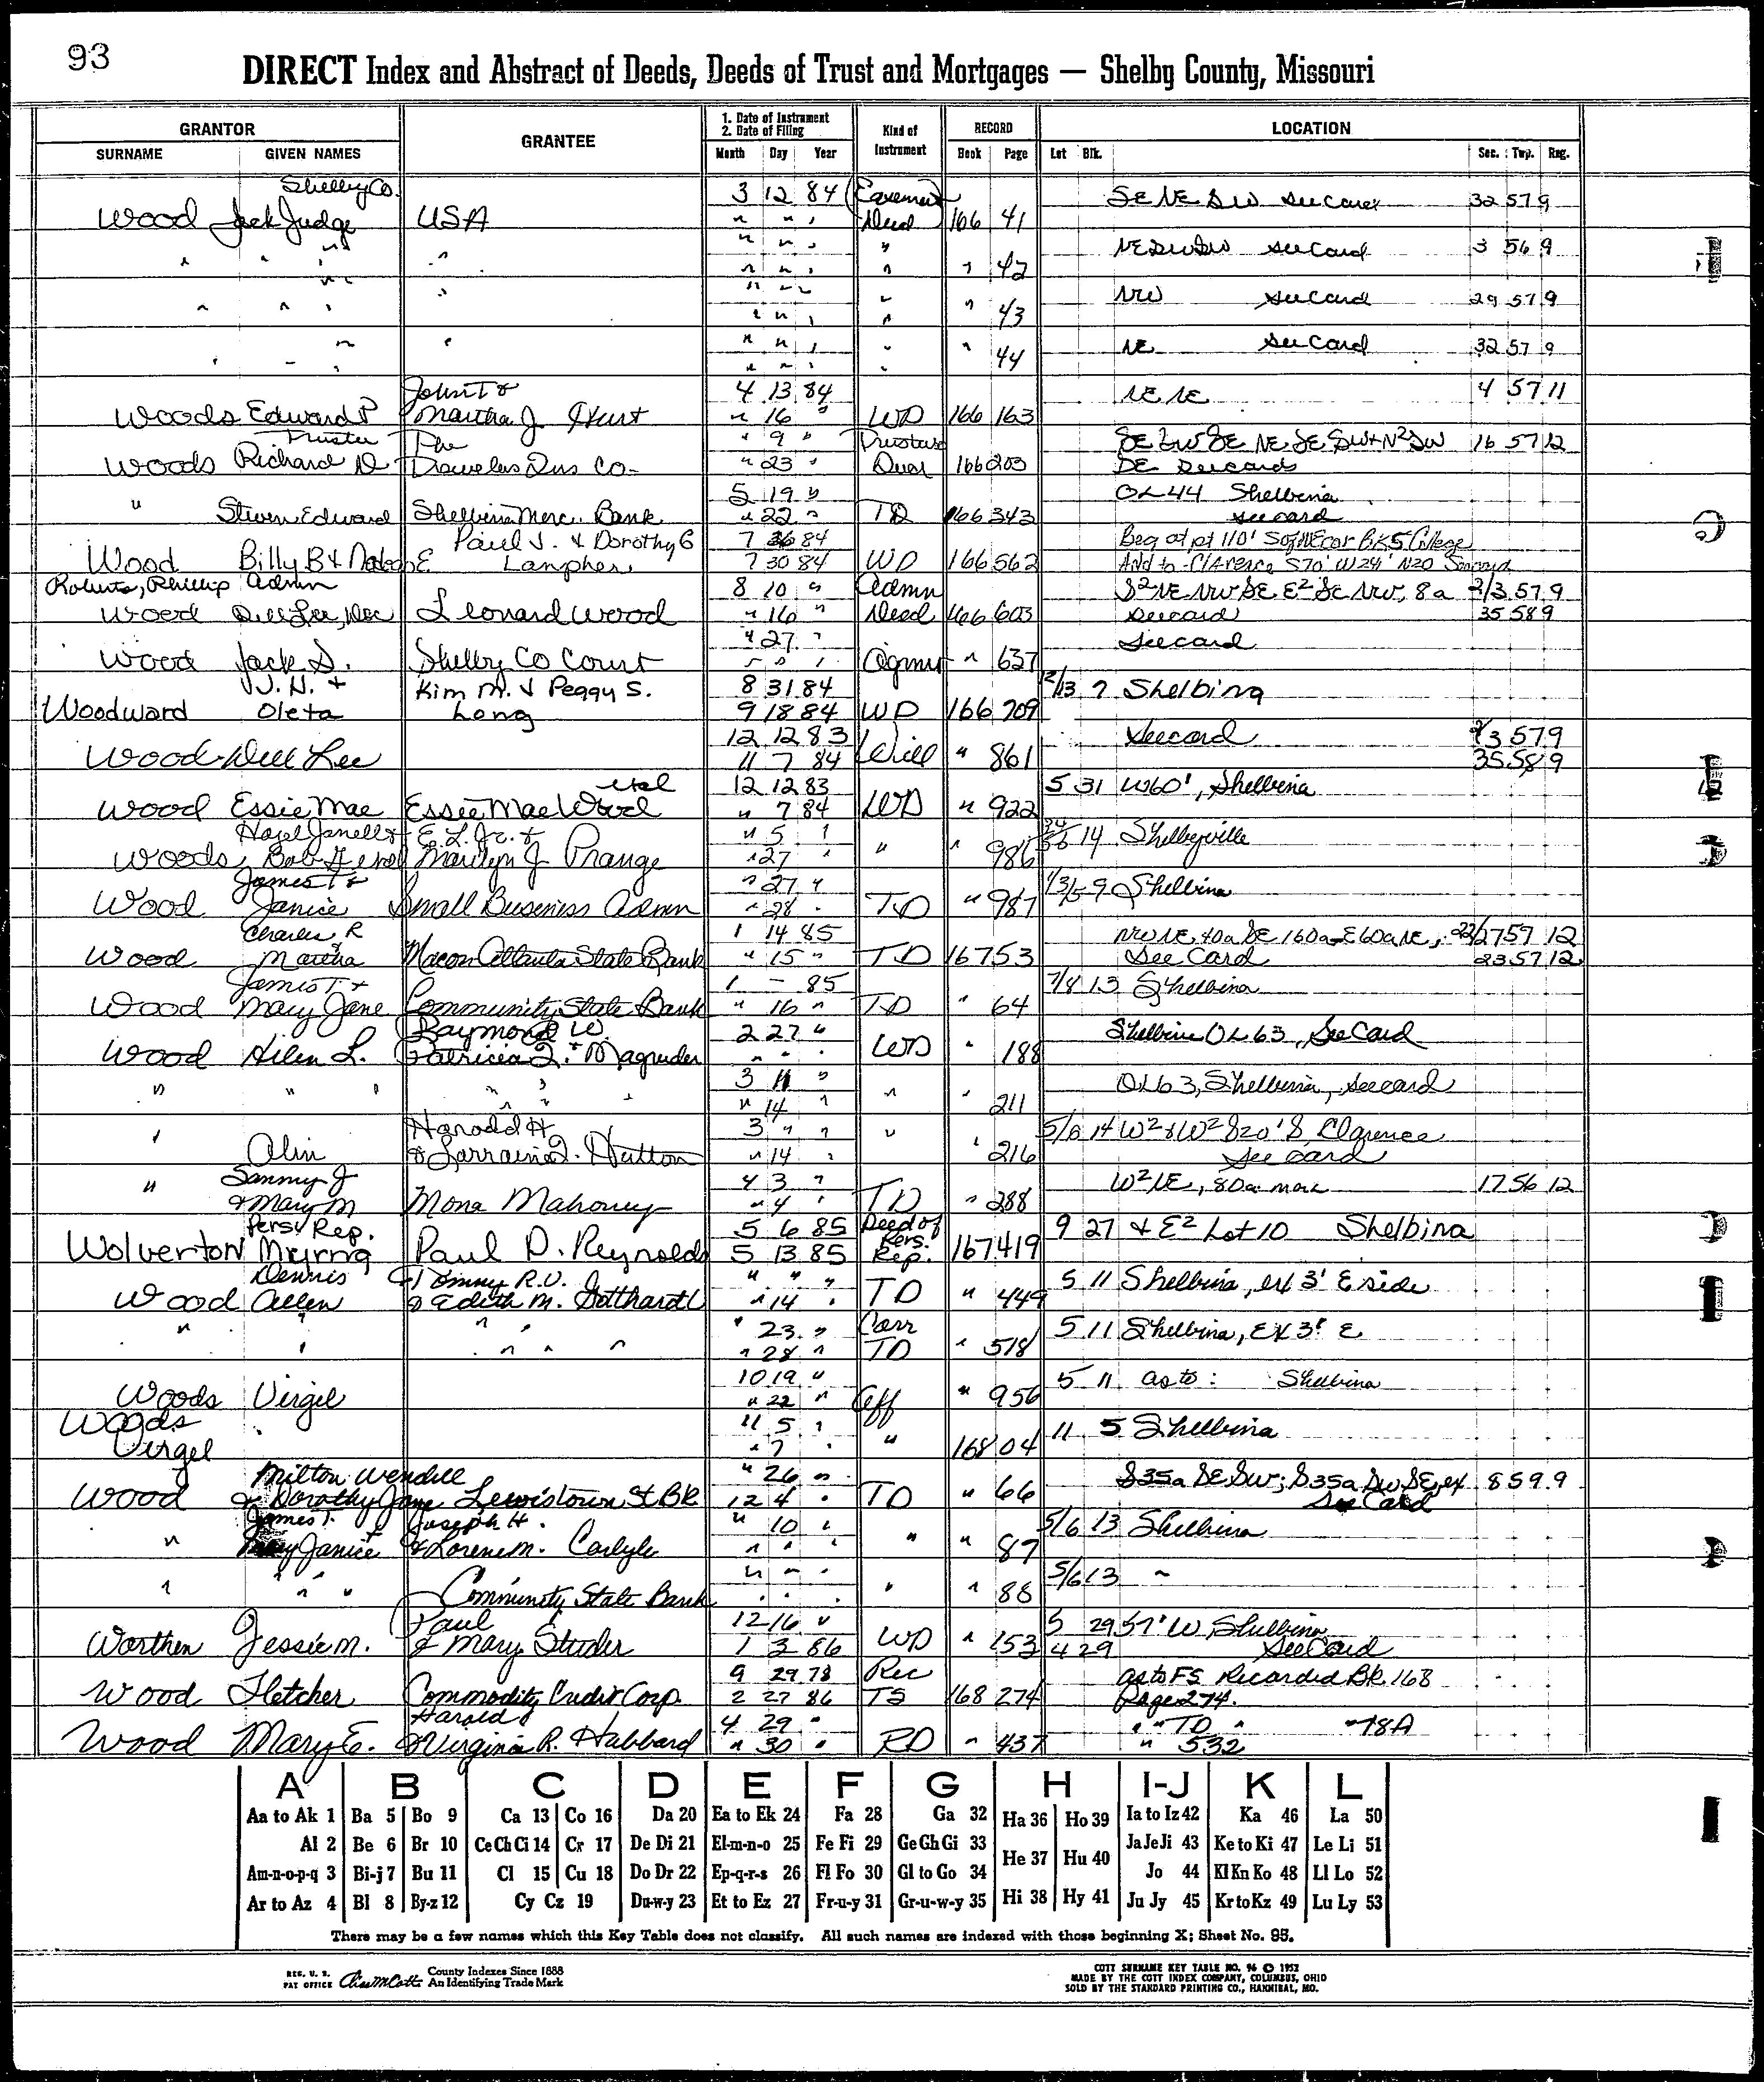 93
DIRECT Index and Abstract of Deeds, Deeds of Trust and Mortgages — Shelby County, Missouri
GRANTOR
SURNAME GIVEN NAMES
GRANTEE
1. Date of Instrument
2. Date of Filing
Month Day Year
Kind of Instrument
RECORD
Book Page
LOCATION
Lot Blk. Sec. Twp. Rng.
Shelby Co. 3 12 84 Easement SE NE SW See Card 32 57 9
Wood Jack Judge USA " " " Deed 166 41
" " " " NE SW SW See Card 3 56 9
" " " " " " " " " 42
" " " " NW See Card 29 57 9
" " " " " " " " 43
" " " " NE See Card 32 57 9
" " " " " " " " 44
John T & 4 13 84 NE NE 4 57 11
Woods Edward P Martha J Hurt " 16 " WD 166 163
Trustee The " 9 " Trustees SE SW SE NE SE SW + N² SW 16 57 12
Woods Richard D Travelers Ins Co " 23 " Deed 166 203 SE See card
5 19 " OL 44 Shelbina
" Steven Edward Shelbina Merc. Bank " 22 " TD 166 343 see card
Paul J. & Dorothy G 7 26 84 Beg at pt 110' S of NE cor BK 5 College
Wood Billy B & E Lanpher 7 30 84 WD 166 562 Add to Clarence S70' W24' N20 See card
Roberts, Phillip Admn 8 10 " Admn S² NE NW SE E² SE NW, 8a 2/3 57 9
Wood Dell Lee, Dec Leonard Wood " 16 " Deed 166 603 See card 35 58 9
" 27 " See card
Wood Jack S. Shelby Co Court " " " Agmt " 637
J. H. & Kim M. & Peggy S. 8 31 84 2/13 7 Shelbina
Woodward Oleta Long 9 18 84 WD 166 709
12 12 83 See card 2/3 57 9
Wood Dell Lee 11 7 84 Will " 861 35 58 9
etal 12 12 83 5 31 W60', Shelbina
Wood Essie Mae Essie Mae Wood " 7 84 WD " 922
Hazel Janell & E. L. Jr. & " 5 " 14 Shelbyville
Woods, Bob Marilyn J Prange " 27 " " " 986
James T & " 27 " 9 Shelbina
Wood Janice Small Business Admn " 28 " TD " 987
Charles R 1 14 85 NW NE, 40a SE 160a E60a NE, 22/27 57 12
Wood & Martha Macon Atlanta State Bank " 15 " TD 167 53 See Card 23 57 12
James T & 1 - 85 7/8 13 Shelbina
Wood Mary Jane Community State Bank " 16 " TD " 64
Raymond W. 2 27 " Shelbina OL 63, See Card
Wood Helen L. Patricia J. & Magruder " " " WD " 188
3 11 " OL 63, Shelbina, see card
" " " " " " " 14 " " " 211
Harold H 3 " " 5/6 14 W² & W² S20' 8, Clarence
" Alin & Larraine J. Hutton " 14 " " " 216 See card
Sammy J 4 3 " W² NE, 80a more 17 56 12
" & Mary M Mona Mahoney " 4 " TD " 288
Pers. Rep. 5 6 85 Deed of Pers. 9 27 & E² Lot 10 Shelbina
Wolverton Myrna Paul D. Reynolds 5 13 85 Rep. 167 419
Dennis Tommy R.V. " " " 5 11 Shelbina, ex 3' E side
Wood Allen & Edith M. Gotthardt " 14 " TD " 449
" 23 " Corr 5 11 Shelbina, EX 3' E
" " " " " " 28 " TD " 518
10 19 " 5 11 as to: Shelbina
Woods Virgel " 22 " Aff " 956
Woods 11 5 " 11 5 Shelbina
Virgel " 7 " " 168 04
Milton Wendell " 26 " S35a SE SW; S35a SW SE, ex 8 59 9
Wood & Dorothy Jane Lewistown St Bk 12 4 " TD " 66 See Card
James T. Joseph H. " 10 " 5/6 13 Shelbina
" Janice & Lorene M. Carlyle " " " " " 87
" " " 5/6 13 "
" " " Community State Bank " " " " " 88
Paul 12 16 " 5 29 57' W Shelbina
Worthen Jessie M. & Mary Studer 1 3 86 WD " 153 4 29 See Card
9 29 78 Rec as to FS Recorded Bk. 168
Wood Fletcher Commodity Credit Corp. 2 27 86 TS 168 274 Page 274.
Harold 4 29 " " " TD " " 78A
Wood Mary E. & Virginia R. Habbard " 30 " RD " 437 " 532
A B C D E F G H I-J K L
Aa to Ak 1 Ba 5 Bo 9 Ca 13 Co 16 Da 20 Ea to Ek 24 Fa 28 Ga 32 Ha 36 Ho 39 Ia to Iz 42 Ka 46 La 50
Al 2 Be 6 Br 10 Ce Ch Ci 14 Cr 17 De Di 21 El-m-n-o 25 Fe Fi 29 Ge Gh Gi 33 He 37 Hu 40 Ja Je Ji 43 Ke to Ki 47 Le Li 51
Am-n-o-p-q 3 Bi-j 7 Bu 11 Cl 15 Cu 18 Do Dr 22 Ep-q-r-s 26 Fl Fo 30 Gl to Go 34 Hi 38 Hy 41 Jo 44 Kl Kn Ko 48 Ll Lo 52
Ar to Az 4 Bl 8 By-z 12 Cy Cz 19 Du-w-y 23 Et to Ez 27 Fr-u-y 31 Gr-u-w-y 35 Ju Jy 45 Kr to Kz 49 Lu Ly 53
There may be a few names which this Key Table does not classify. All such names are indexed with those beginning X; Sheet No. 95.
REG. U. S. PAT OFFICE County Indexes Since 1888 An Identifying Trade Mark
COTT SURNAME KEY TABLE NO. 96 © 1952
MADE BY THE COTT INDEX COMPANY, COLUMBUS, OHIO
SOLD BY THE STANDARD PRINTING CO., HANNIBAL, MO.